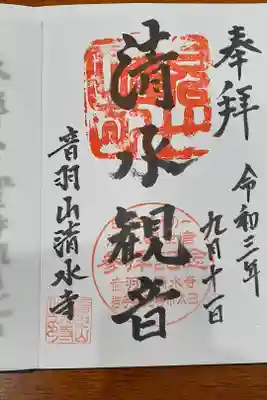 奉拝
令和三年
九月十一日
清水観音
音羽山清水寺